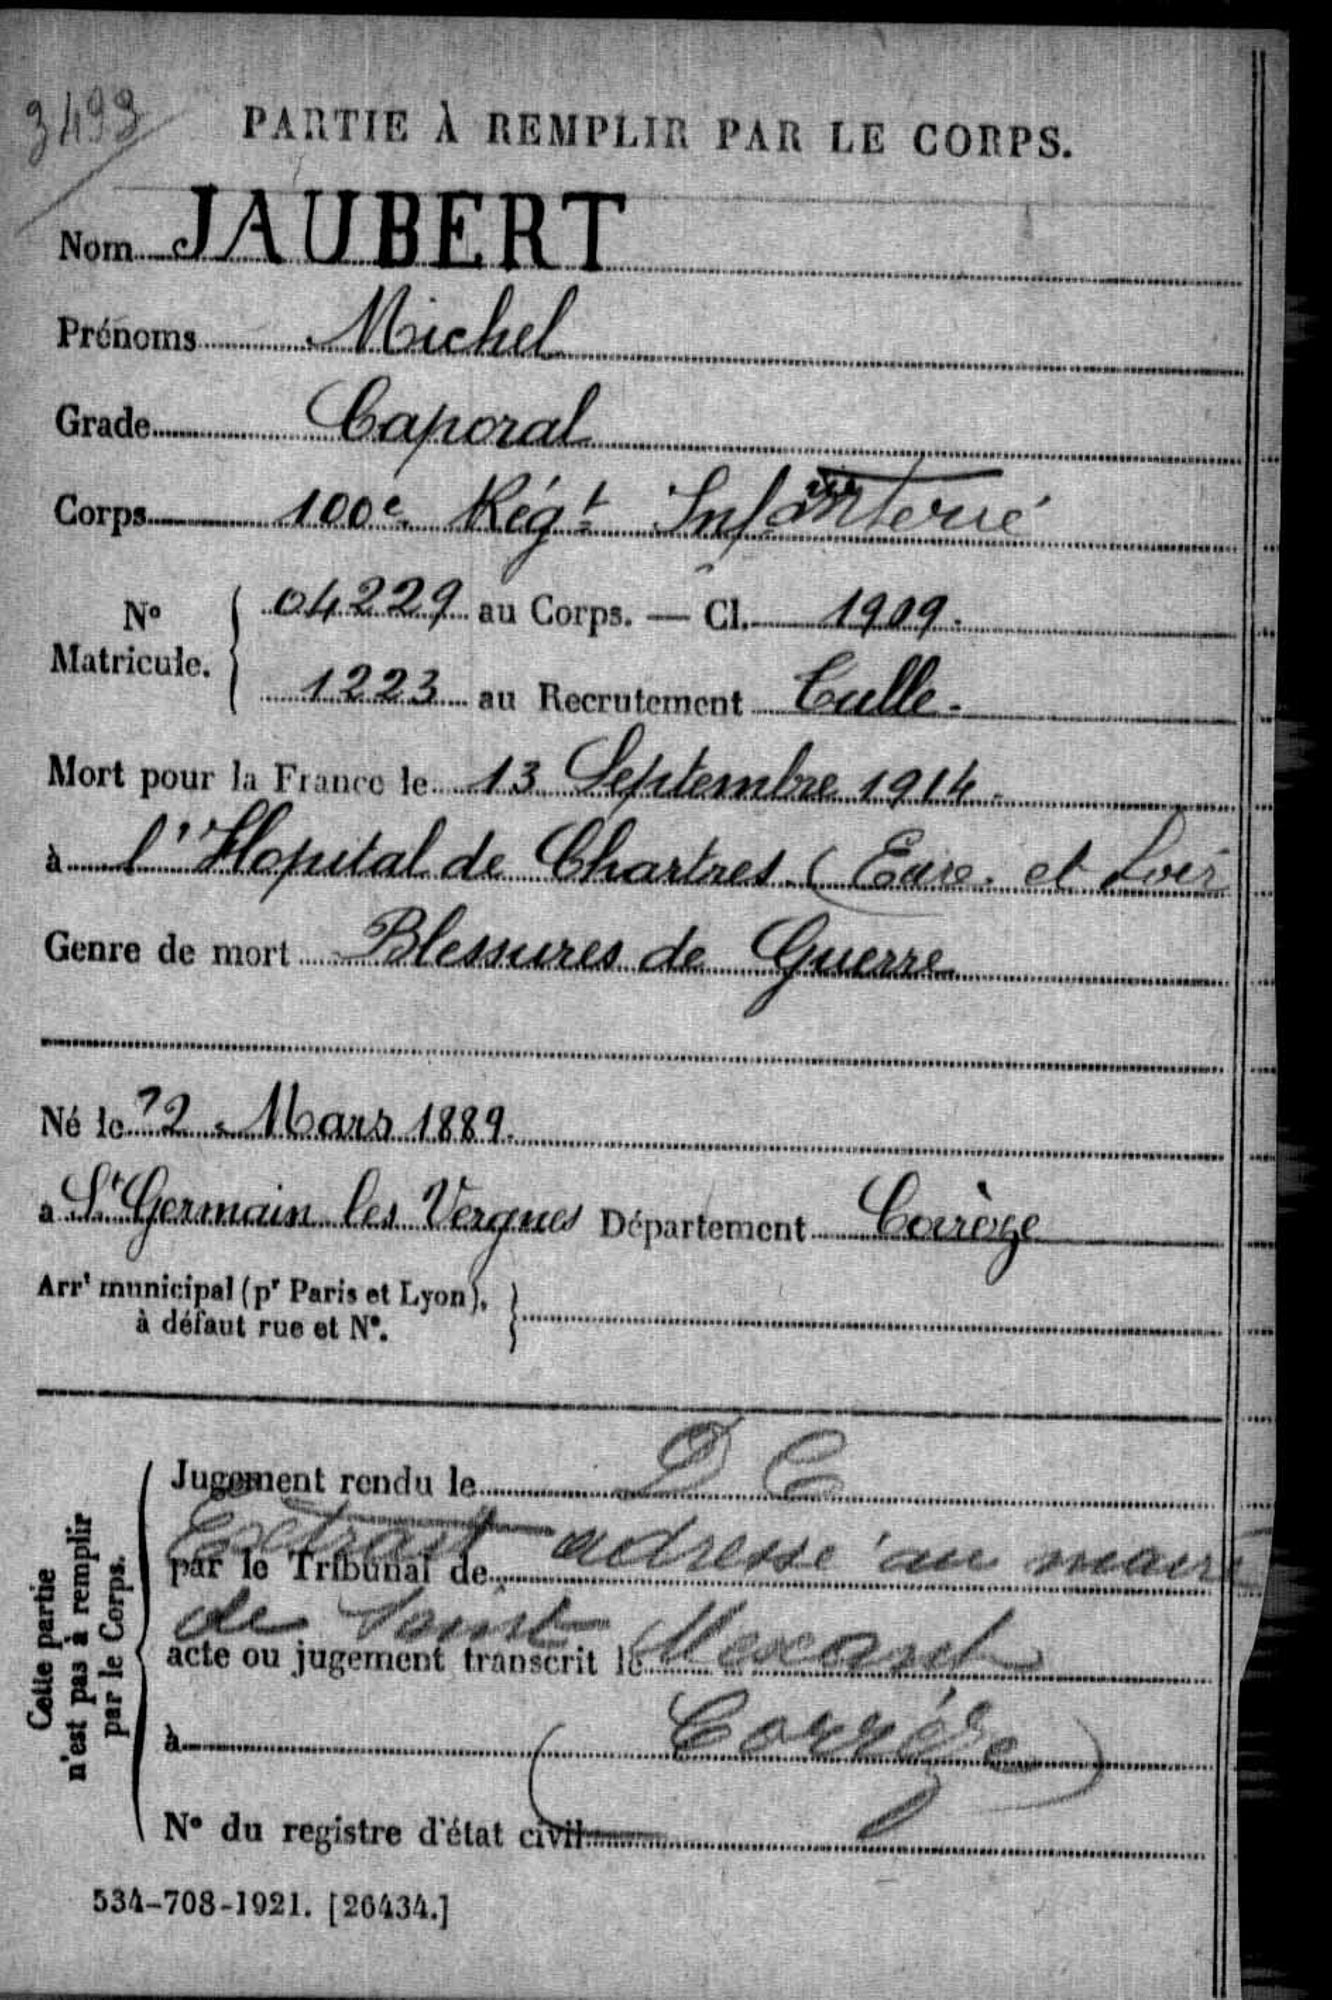 3493
PARTIE À REMPLIR PAR LE CORPS.
Nom JAUBERT
Prénoms Michel
Grade Caporal
Corps 100e Régt Infanterie
No Matricule. 04229 au Corps. — Cl. 1909.
1223 au Recrutement Tulle.
Mort pour la France le 13 Septembre 1914.
à l'Hopital de Chartres (Eure et Loir
Genre de mort Blessures de Guerre
Né le 22 Mars 1889.
a St Germain les Vergnes Département Corrèze
Arrt municipal (pr Paris et Lyon),
à défaut rue et N°.
Jugement rendu le D C
Extrait adressé au maire
par le Tribunal de
de Saint Mexant
acte ou jugement transcrit le
à (Corrèze)
N° du registre d'état civil
Cette partie
n'est pas à remplir
par le Corps.
534-708-1921. [26434.]